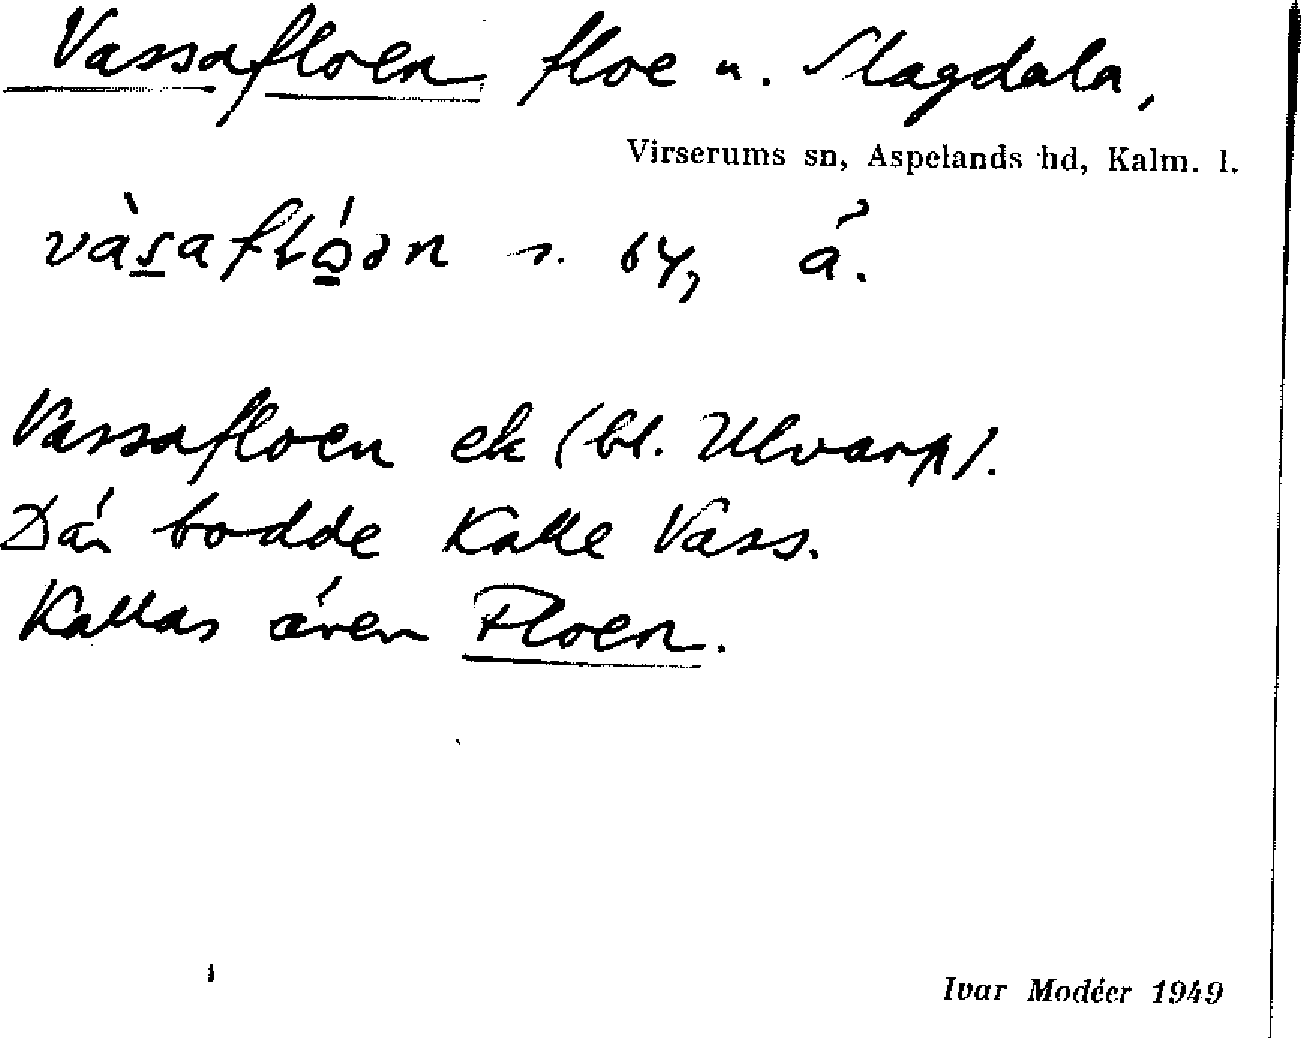 Vassafloen floe u. Slagdala,
Virserums sn, Aspelands hd, Kalm. l.
vàsaflóən s. by, å.
Vassafloen ek (bl. Ulvarp).
Där bodde Kalle Vass.
Kallas även Floen.
Ivar Modéer 1949